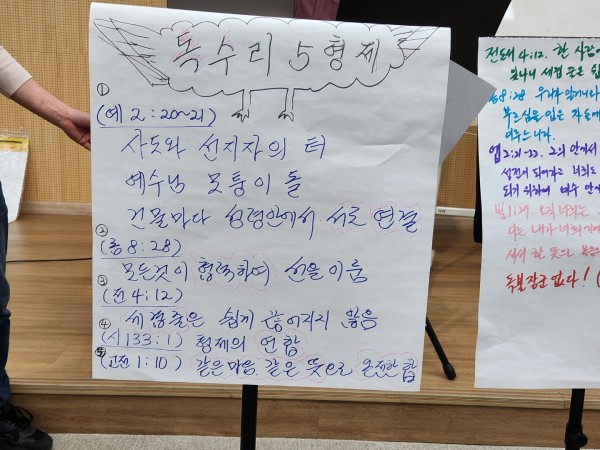 독수리 5형제
①
(에 2:20~21)
사도와 선지자의 터
예수님 모퉁이 돌
건물마다 성령안에서 서로 연결
②
(롬 8:28)
모든것이 협력하여 선을 이룸
③
(전 4:12)
세겹줄은 쉽게 끊어지지 않음
④
(시 133:1) 형제의 연합
⑤
(고전 1:10) 같은마음 같은 뜻으로 온전한 합
전도서 4:12. 한 사람
세겹 줄은 쉽
8:28 우리가
부르심을 입은 자들에
이루느니라.
엡 2:21-22. 그의 안에서
성전이 되어가고 너희도
되기 위하여 예수 안에
빌 1:27.
서서 한 뜻으로 복음
독불장군 없다! (